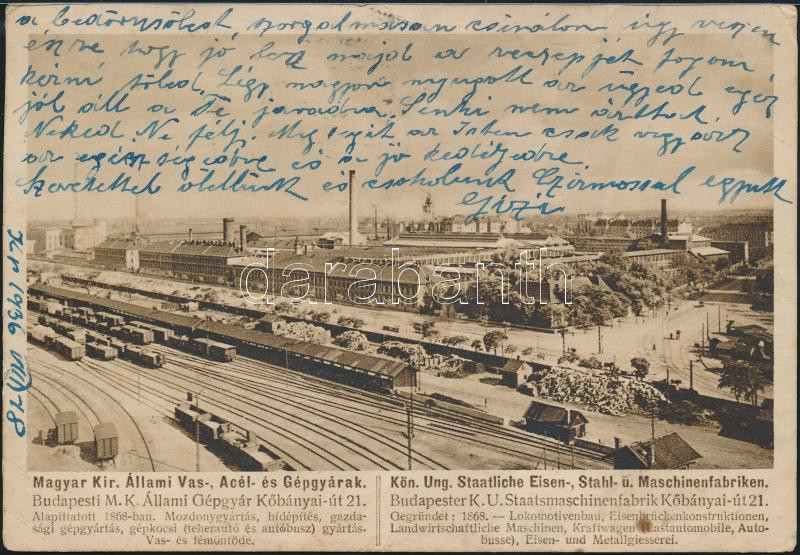 a szorgalmasan csinálom, úgy veszem
észre hogy jó lesz majd a receptjét fogom
kérni tőled. Légy nagyon nyugodt az ügyed egész
jól áll a Te javadra. Senki nem árthat
Neked. Ne félj. Meg segít az Isten csak vigyázz
az egészségedre és a jó kedvedre.
Szeretettel ölellünk és csókolunk együtt
Gizi
1936 VIII/18
darabanth
Magyar Kir. Állami Vas-, Acél- és Gépgyárak.
Budapesti M. K. Állami Gépgyár Kőbányai-út 21.
Alapíttatott 1868-ban. Mozdonygyártás, hídépítés, gazda-
sági gépgyártás, gépkocsi (teherautó és autóbusz) gyártás.
Vas- és fémöntöde.
Kön. Ung. Staatliche Eisen-, Stahl- u. Maschinenfabriken.
Budapester K. U. Staatsmaschinenfabrik Kőbányai-út 21.
Gegründet: 1868. — Lokomotivenbau, Eisenbrückenkonstruktionen,
Landwirtschaftliche Maschinen, Kraftwagen (Lastautomobile, Auto-
busse), Eisen- und Metallgiesserei.